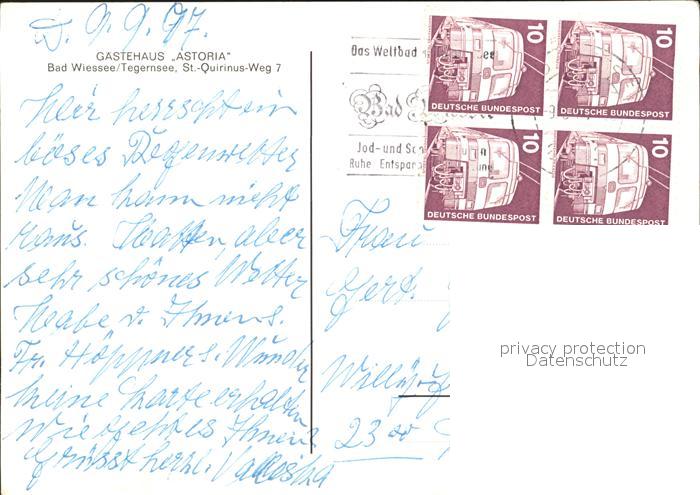 D. 9. 9. 77.
GÄSTEHAUS „ASTORIA"
Bad Wiessee/Tegernsee, St.-Quirinus-Weg 7
Hier herrscht ein
böses Regenwetter
Man kann nicht
raus. Hatten, aber
sehr schönes Wetter
Habe v. Ihnen u.
Fr. Höppner s. Wunder
keine Karte erhalten
Wie geht es Ihnen
Grüsst herzl.
Das Weltbad
Bad
Jod- und Sch
Ruhe Entspan
10
DEUTSCHE BUNDESPOST
10
DEUTSCHE BUNDESPOST
10
DEUTSCHE BUNDESPOST
10
DEUTSCHE BUNDESPOST
Frau
Gert
23 00
privacy protection
Datenschutz